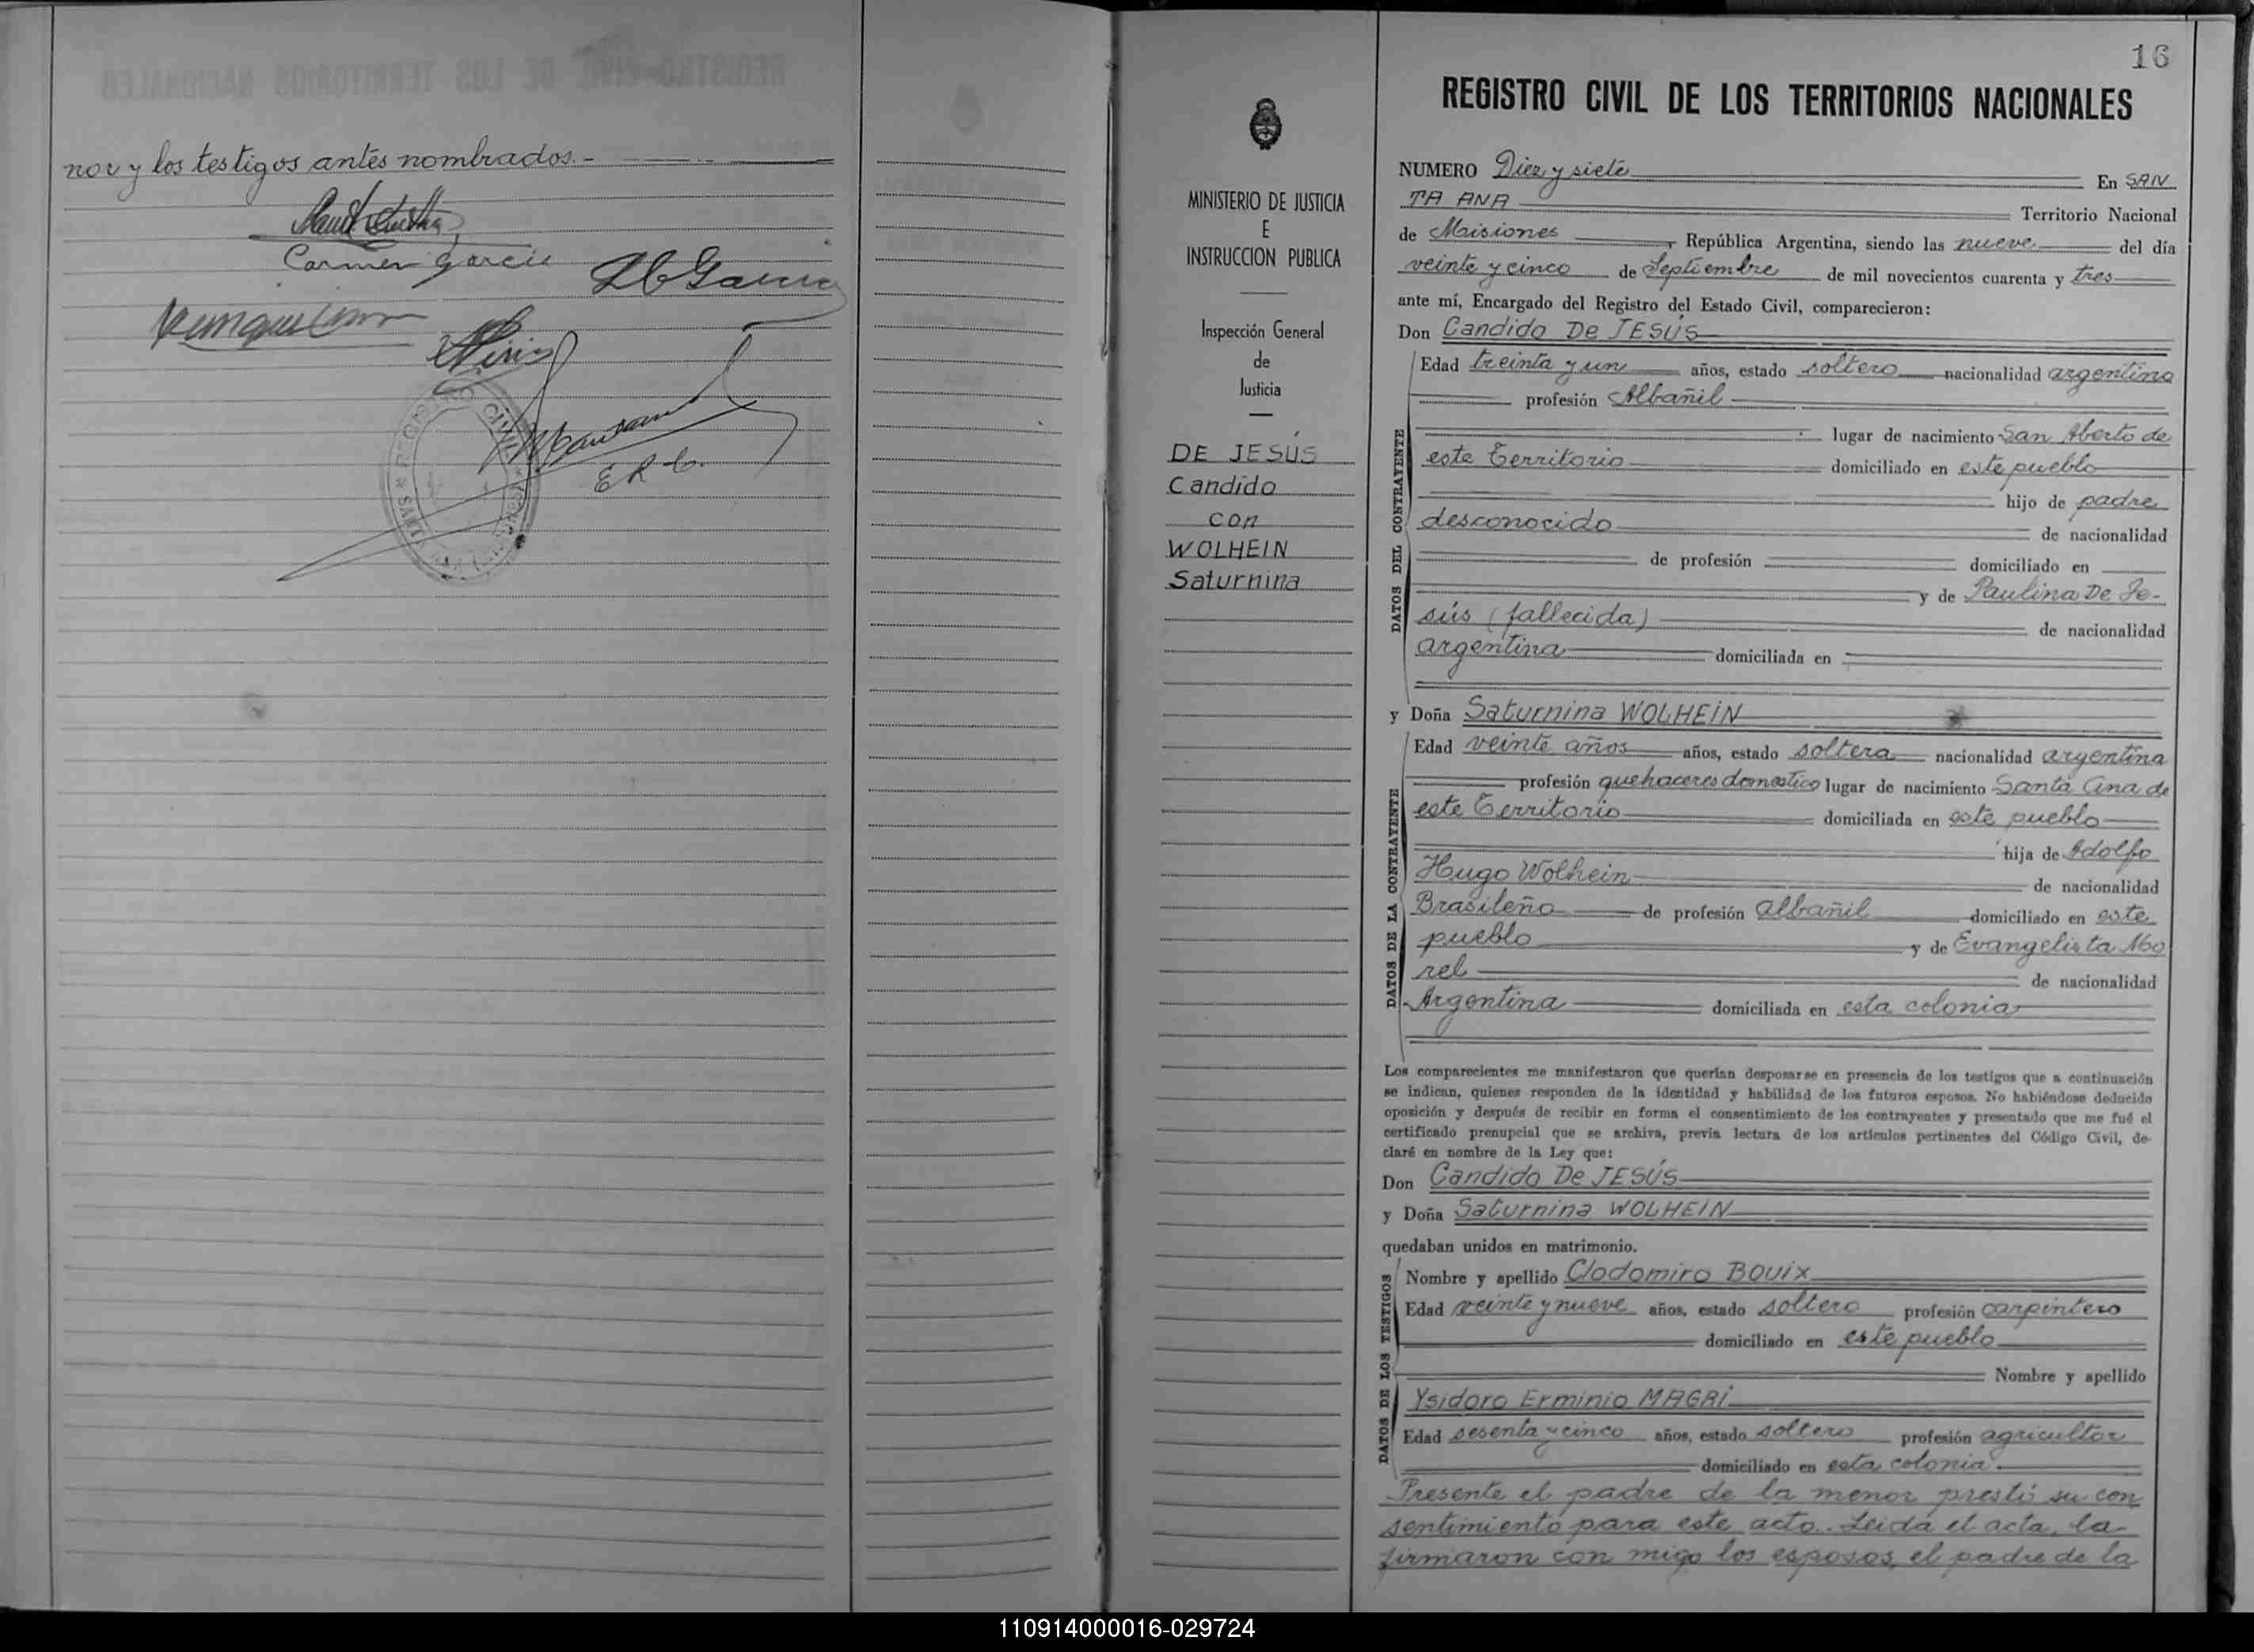 nor y los testigos antes nombrados.-
Carmen Garcia
E R C.
16
REGISTRO CIVIL DE LOS TERRITORIOS NACIONALES
MINISTERIO DE JUSTICIA
E
INSTRUCCION PUBLICA
Inspección General
de
Justicia
DE JESÚS
Candido
con
WOLHEIN
Saturnina
NUMERO Diez y siete En SAN
TA ANA Territorio Nacional
de Misiones, República Argentina, siendo las nueve del día
veinte y cinco de Septiembre de mil novecientos cuarenta y tres
ante mí, Encargado del Registro del Estado Civil, comparecieron:
Don Candido De JESÚS
DATOS DEL CONTRAYENTE
Edad treinta y un años, estado soltero nacionalidad argentino
profesión Albañil
lugar de nacimiento San Alberto de
este Territorio domiciliado en este pueblo
hijo de padre
desconocido de nacionalidad
de profesión domiciliado en
y de Paulina De Je-
sús (fallecida) de nacionalidad
argentina domiciliada en
y Doña Saturnina WOLHEIN
DATOS DE LA CONTRAYENTE
Edad veinte años años, estado soltera nacionalidad argentina
profesión quehaceres domestico lugar de nacimiento Santa Ana de
este Territorio domiciliada en este pueblo
hija de Adolfo
Hugo Wolhein de nacionalidad
Brasileño de profesión albañil domiciliado en este
pueblo y de Evangelista Mo
rel de nacionalidad
Argentina domiciliada en esta colonia
Los comparecientes me manifestaron que querían desposarse en presencia de los testigos que a continuación
se indican, quienes responden de la identidad y habilidad de los futuros esposos. No habiéndose deducido
oposición y después de recibir en forma el consentimiento de los contrayentes y presentado que me fué el
certificado prenupcial que se archiva, previa lectura de los artículos pertinentes del Código Civil, de-
claré en nombre de la Ley que:
Don Candido De JESÚS
y Doña Saturnina WOLHEIN
quedaban unidos en matrimonio.
DATOS DE LOS TESTIGOS
Nombre y apellido Clodomiro BOUIX
Edad veinte y nueve años, estado soltero profesión carpintero
domiciliado en este pueblo
Nombre y apellido
Ysidoro Erminio MAGRI
Edad sesenta y cinco años, estado soltero profesión agricultor
domiciliado en esta colonia.
Presente el padre de la menor prestó su con
sentimiento para este acto. Leida el acta, la
firmaron con migo los esposos, el padre de la
110914000016-029724